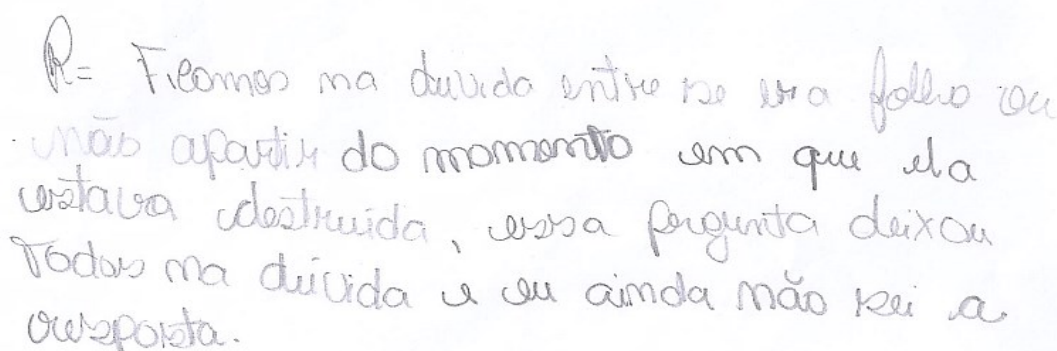 R= Ficamos na duvida entre se era folha ou
não apartir do momento em que ela
estava destruida, essa pergunta deixou
Todos na dúvida e eu ainda não sei a
resposta.